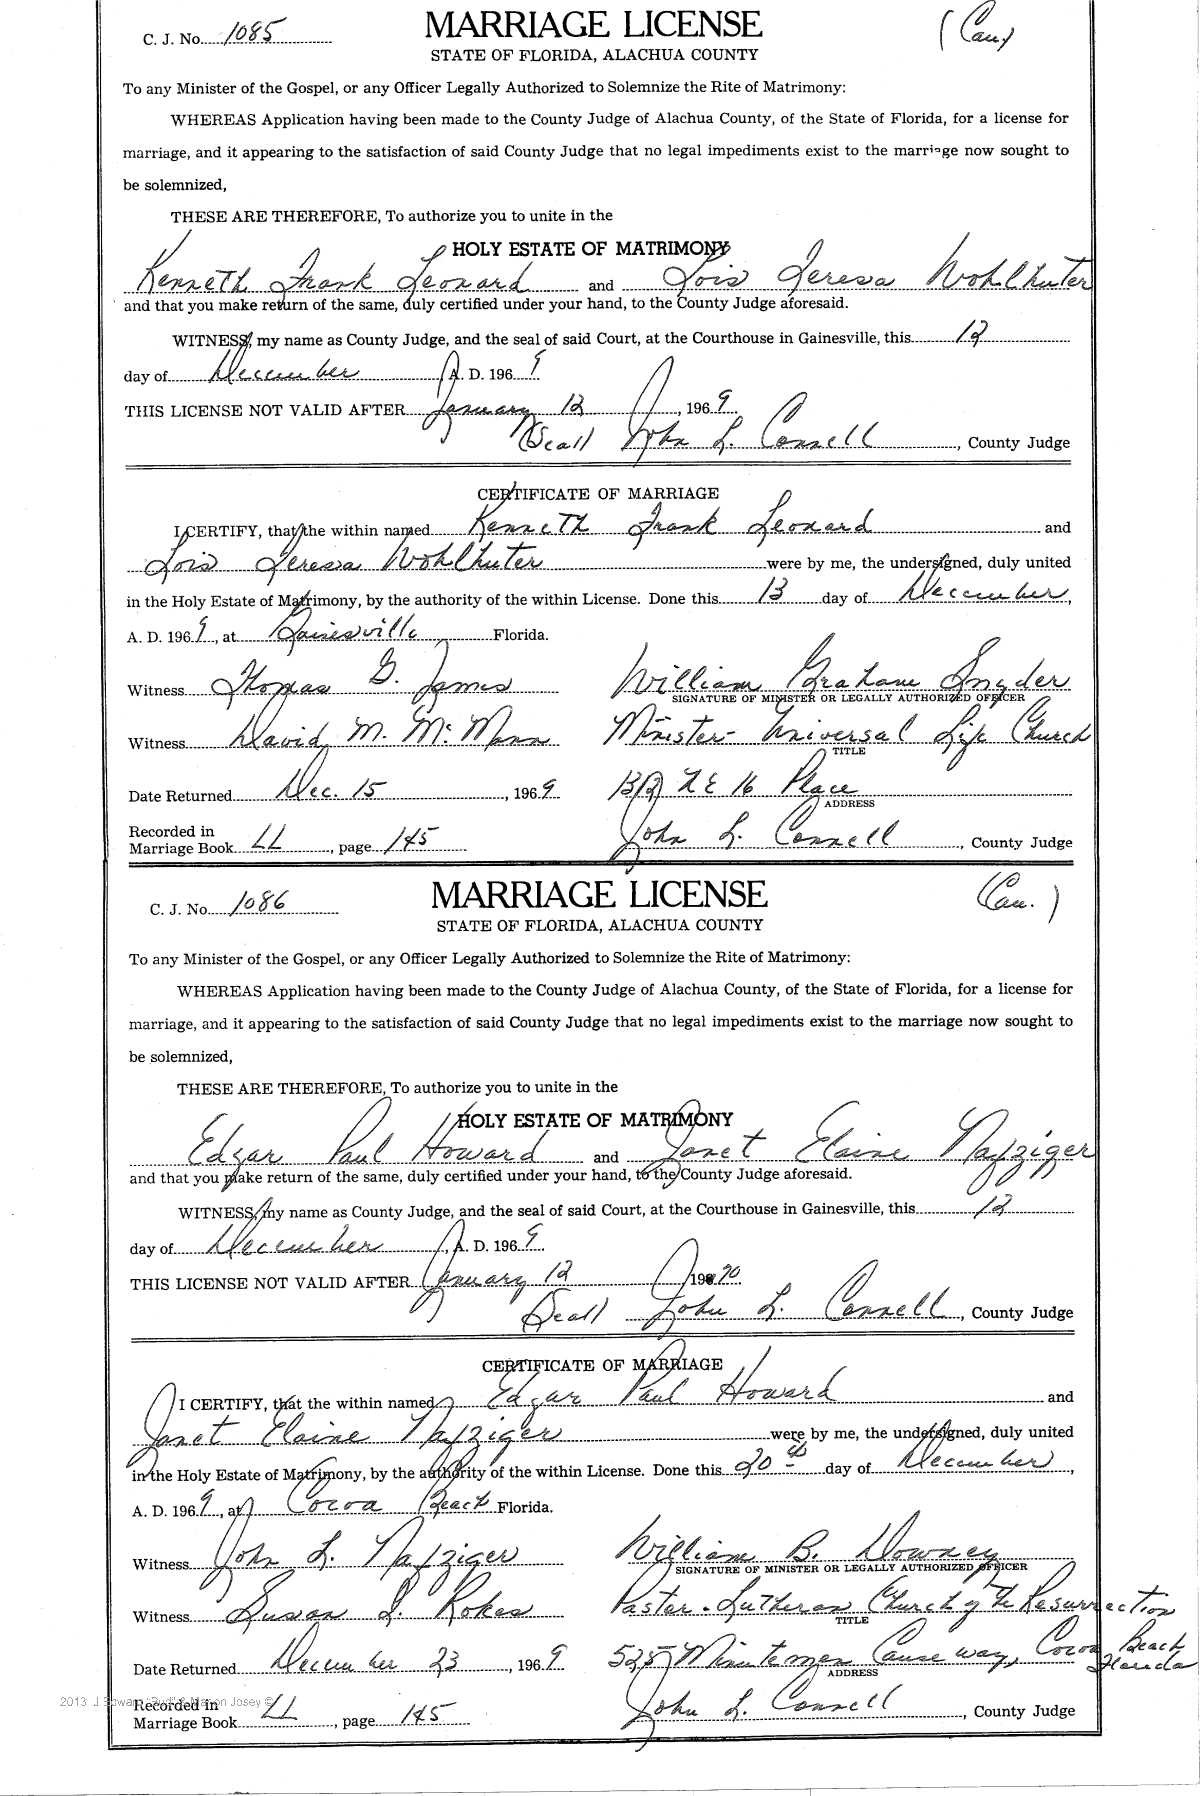 C. J. No. 1085
MARRIAGE LICENSE
(Cau.)
STATE OF FLORIDA, ALACHUA COUNTY
To any Minister of the Gospel, or any Officer Legally Authorized to Solemnize the Rite of Matrimony:
WHEREAS Application having been made to the County Judge of Alachua County, of the State of Florida, for a license for
marriage, and it appearing to the satisfaction of said County Judge that no legal impediments exist to the marriage now sought to
be solemnized,
THESE ARE THEREFORE, To authorize you to unite in the
HOLY ESTATE OF MATRIMONY
Kenneth Frank Leonard and Lois Teresa Wohlhuter
and that you make return of the same, duly certified under your hand, to the County Judge aforesaid.
WITNESS, my name as County Judge, and the seal of said Court, at the Courthouse in Gainesville, this 12
day of December, A. D. 1969
THIS LICENSE NOT VALID AFTER January 12, 1969
(Seal) John L. Connell, County Judge
CERTIFICATE OF MARRIAGE
I CERTIFY, that the within named Kenneth Frank Leonard and
Lois Teresa Wohlhuter were by me, the undersigned, duly united
in the Holy Estate of Matrimony, by the authority of the within License. Done this 13 day of December,
A. D. 1969, at Gainesville, Florida.
Witness Thomas G. James William Graham Snyder
SIGNATURE OF MINISTER OR LEGALLY AUTHORIZED OFFICER
Witness David M. McMann Minister - Universal Life Church
TITLE
Date Returned Dec. 15, 1969 1312 N E 16 Place
ADDRESS
Recorded in
Marriage Book LL, page 145 John L. Connell, County Judge
C. J. No. 1086
MARRIAGE LICENSE
(Cau.)
STATE OF FLORIDA, ALACHUA COUNTY
To any Minister of the Gospel, or any Officer Legally Authorized to Solemnize the Rite of Matrimony:
WHEREAS Application having been made to the County Judge of Alachua County, of the State of Florida, for a license for
marriage, and it appearing to the satisfaction of said County Judge that no legal impediments exist to the marriage now sought to
be solemnized,
THESE ARE THEREFORE, To authorize you to unite in the
HOLY ESTATE OF MATRIMONY
Edgar Paul Howard and Janet Elaine Nafziger
and that you make return of the same, duly certified under your hand, to the County Judge aforesaid.
WITNESS, my name as County Judge, and the seal of said Court, at the Courthouse in Gainesville, this 12
day of December, A. D. 1969
THIS LICENSE NOT VALID AFTER January 12, 1970
(Seal) John L. Connell, County Judge
CERTIFICATE OF MARRIAGE
I CERTIFY, that the within named Edgar Paul Howard and
Janet Elaine Nafziger were by me, the undersigned, duly united
in the Holy Estate of Matrimony, by the authority of the within License. Done this 20th day of December,
A. D. 1969, at Cocoa Beach Florida.
Witness John L. Nafziger William B. Downey
SIGNATURE OF MINISTER OR LEGALLY AUTHORIZED OFFICER
Witness Susan J. Rokes Pastor - Lutheran Church of the Resurrection
TITLE
Date Returned December 23, 1969 525 Minutemen Causeway, Cocoa Beach Florida
ADDRESS
2013 J Edward "Bud" & Marion Josey ©
Recorded in
Marriage Book LL, page 145 John L. Connell, County Judge